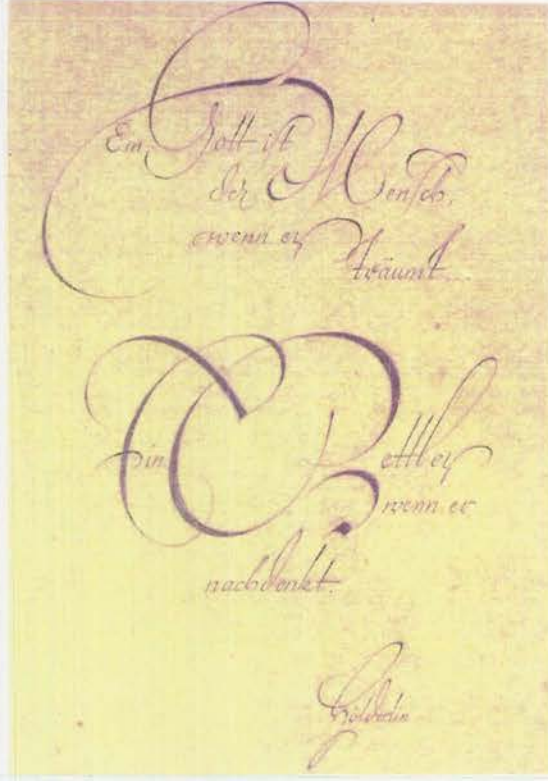 Ein Gott ist
der Mensch,
wenn er
träumt...
Ein Bettler
wenn er
nachdenkt.
Hölderlin